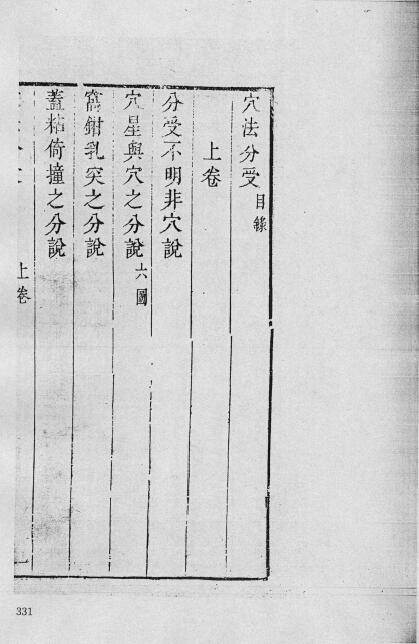 穴法分受目錄
上卷
分受不明非穴說
穴星與穴之分說六圖
窩鉗乳突之分說
蓋粘倚撞之分說
上卷
一
331